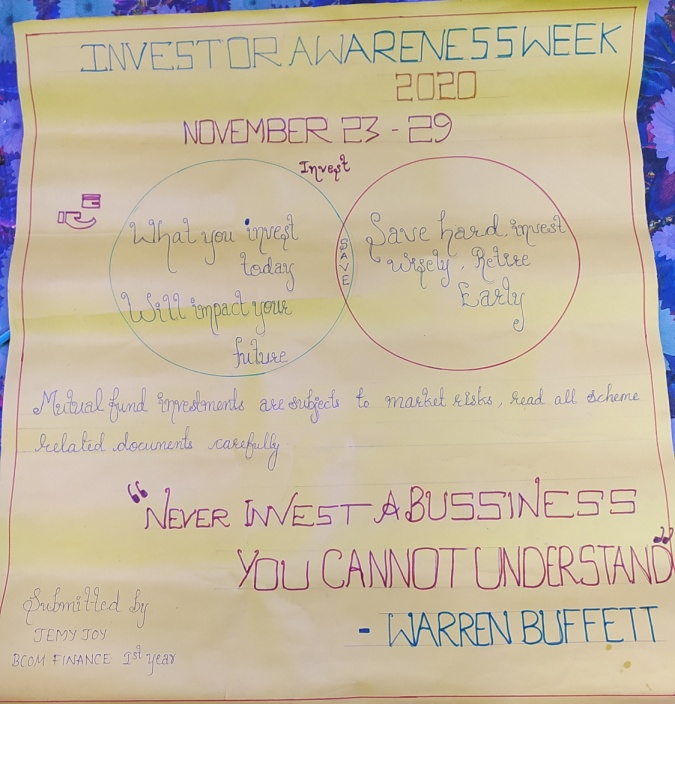 INVESTOR AWARENESS WEEK
2020
NOVEMBER 23 - 29
Invest
What you invest
today
Will impact your
future
SAVE
Save hard, invest
wisely, Retire
Early
Mutual fund investments are subjects to market risks, read all scheme
related documents carefully
"NEVER INVEST A BUSSINESS
YOU CANNOT UNDERSTAND"
- WARREN BUFFETT
Submitted by
JEMY JOY
BCOM FINANCE 1st year